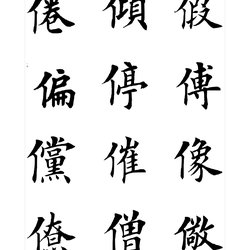 倦 傾 假
偏 停 傅
儻 催 像
僚 僧 儆